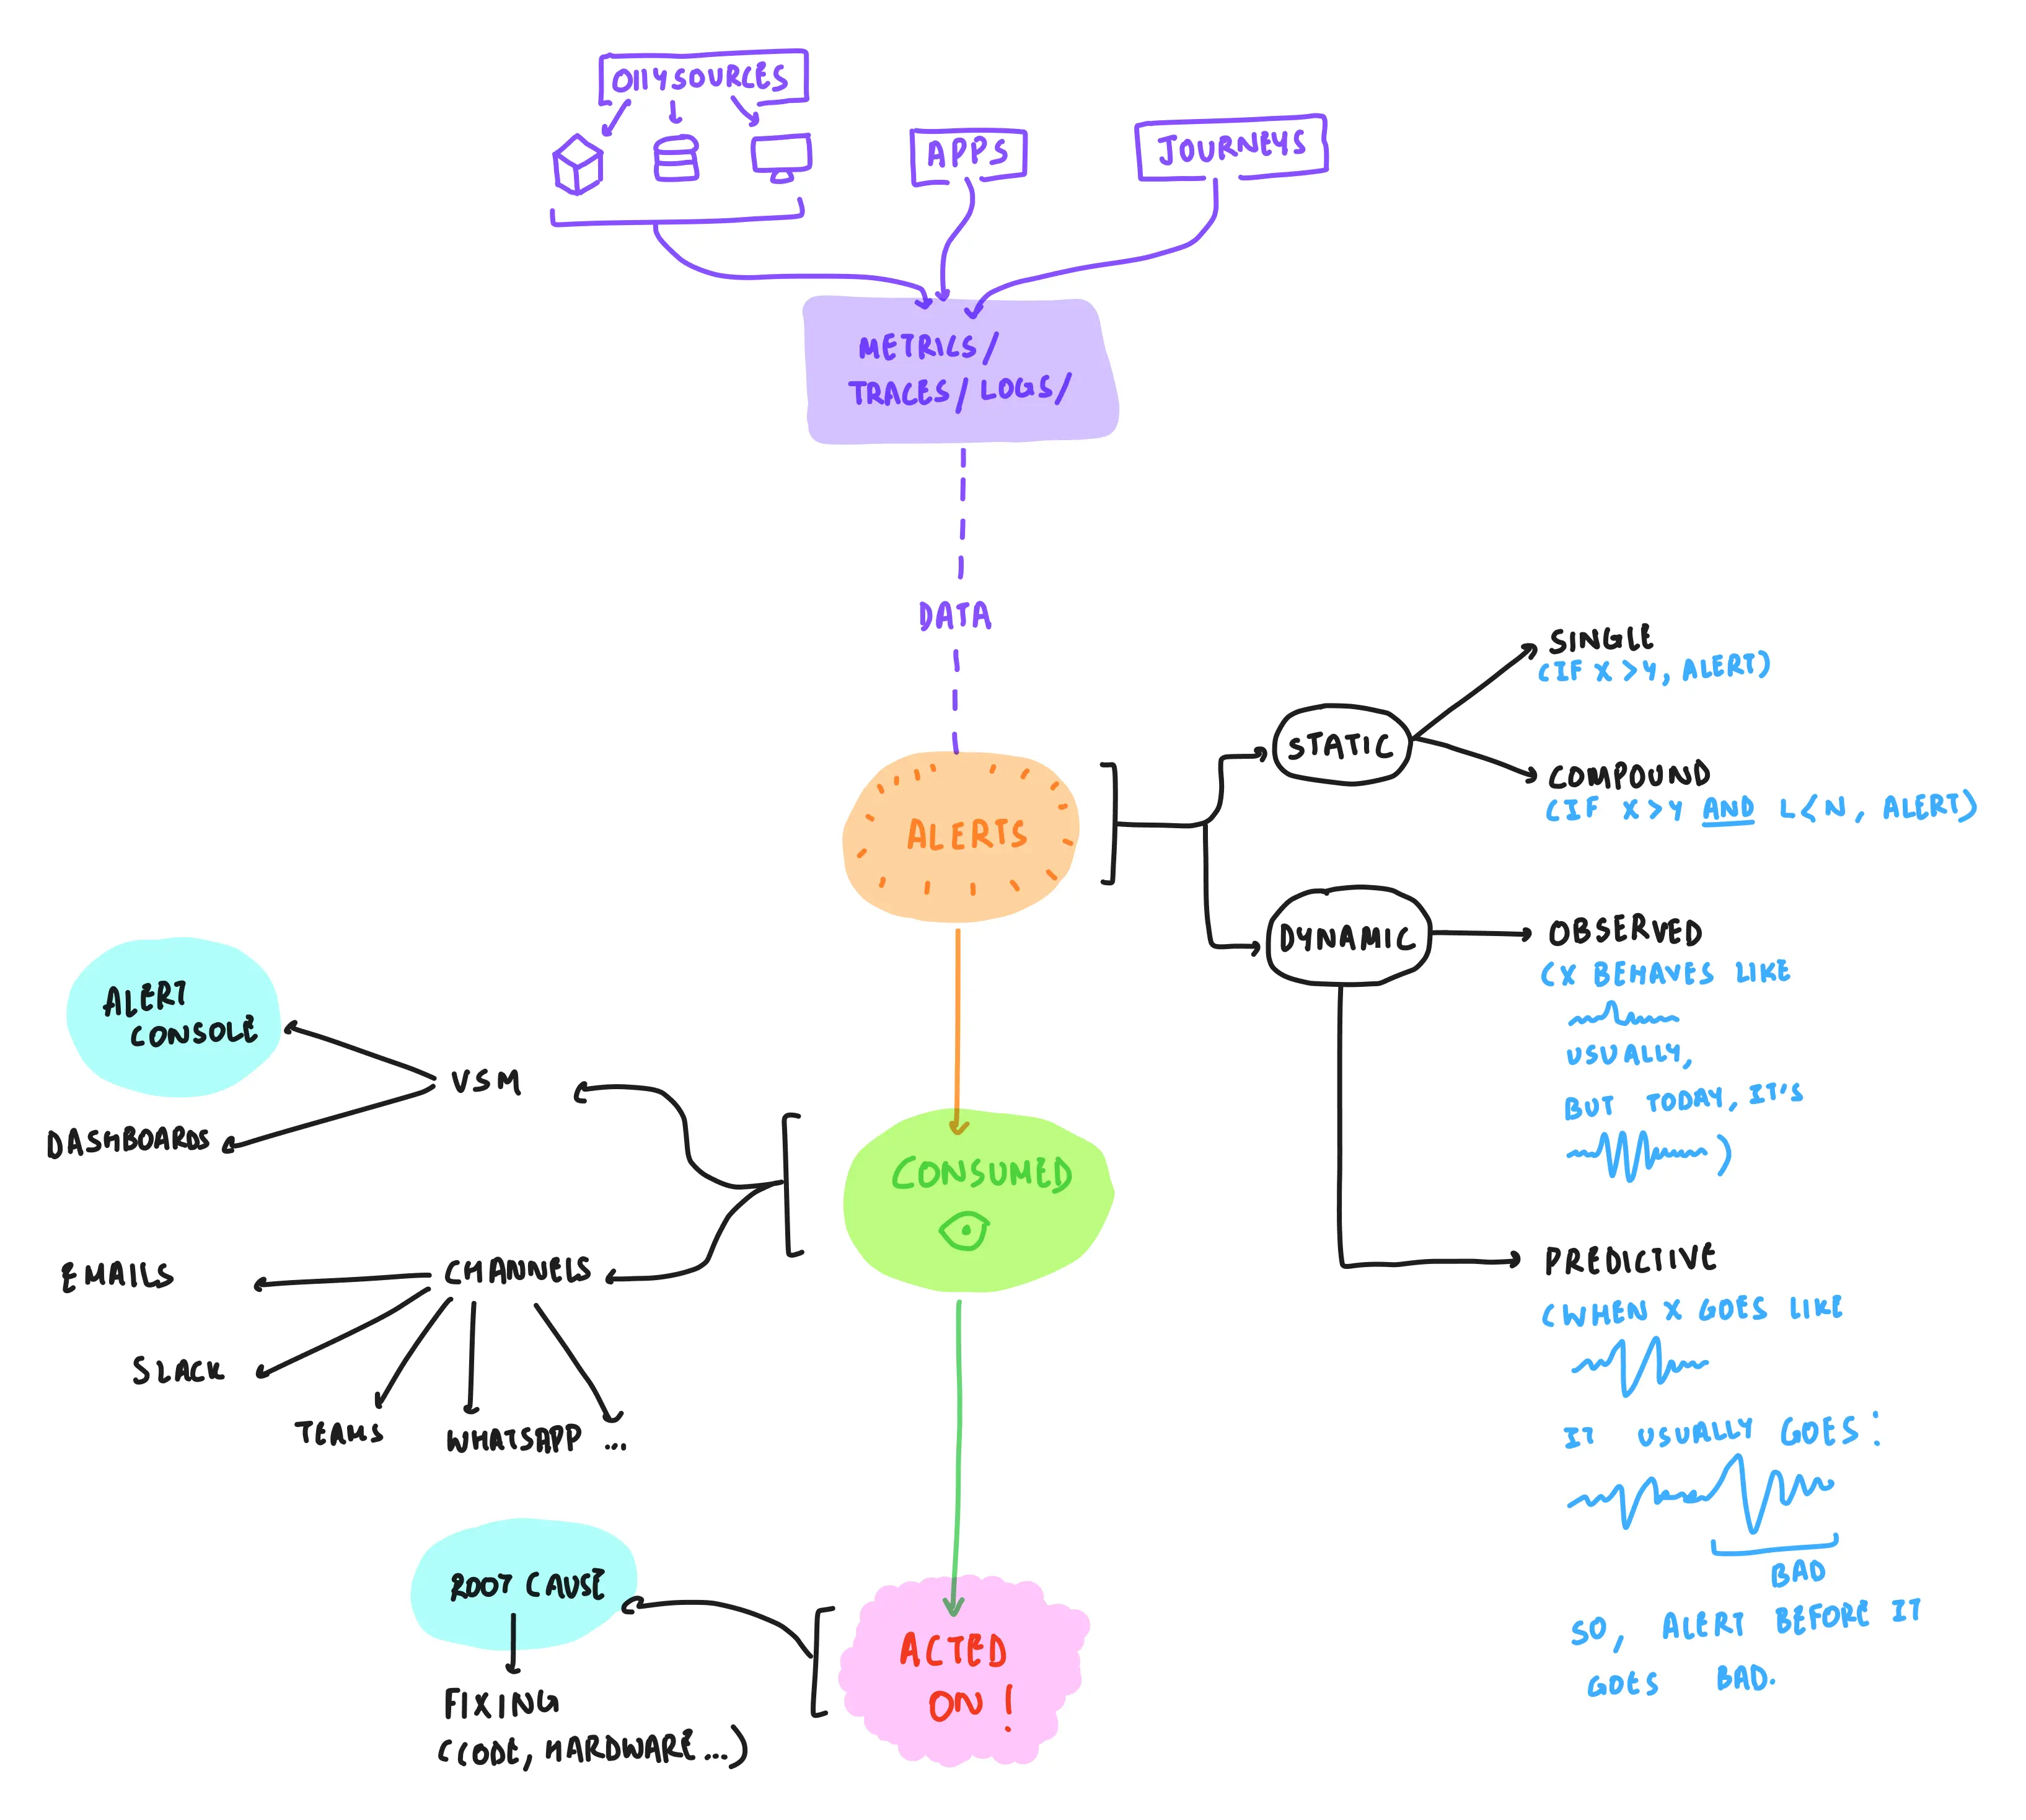 O11Y SOURCES
APPS
JOURNEYS
METRICS/
TRACES/LOGS/
DATA
ALERTS
STATIC
SINGLE
(IF X >Y, ALERT)
COMPOUND
(IF X>Y AND L<N, ALERT)
DYNAMIC
OBSERVED
(X BEHAVES LIKE
USUALLY,
BUT TODAY, IT'S
)
PREDICTIVE
(WHEN X GOES LIKE
IT USUALLY GOES:
BAD
SO, ALERT BEFORE IT
GOES BAD.
CONSUMED
VSM
ALERT
CONSOLE
DASHBOARDS
CHANNELS
EMAILS
SLACK
TEAMS
WHATSAPP ...
ACTED
ON!
ROOT CAUSE
FIXING
(CODE, HARDWARE...)